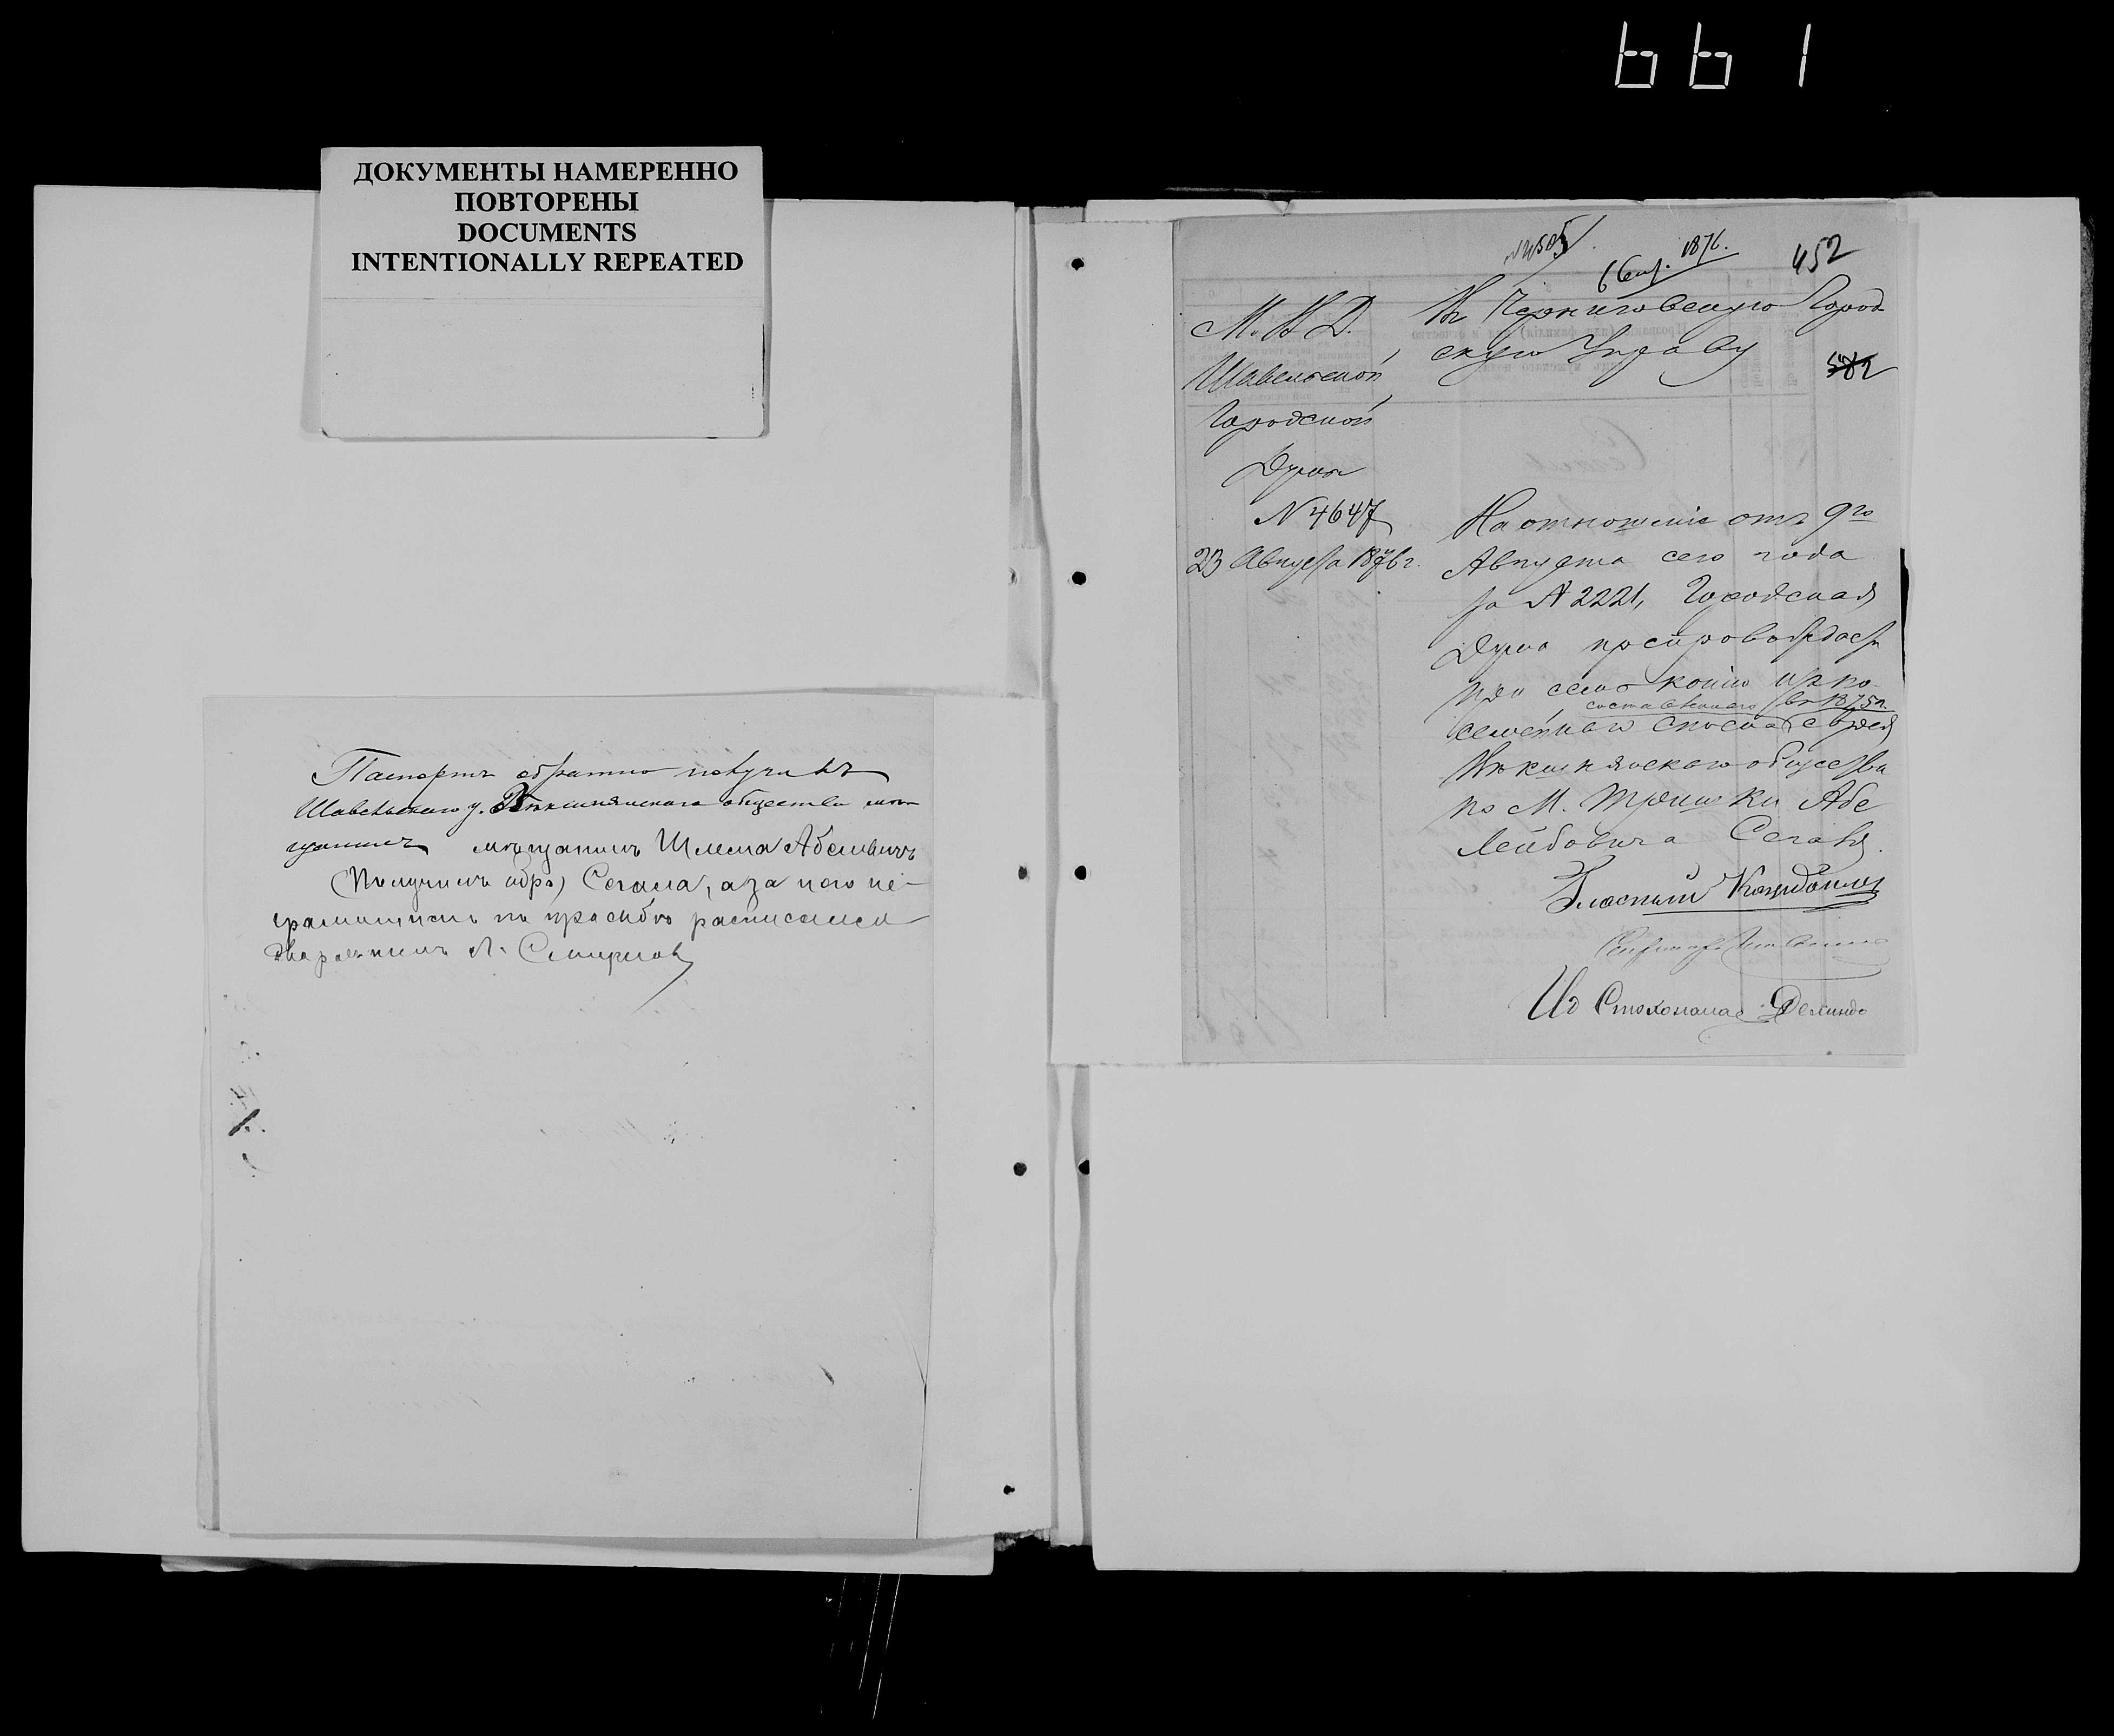 661
ДОКУМЕНТЫ НАМЕРЕННО
ПОВТОРЕНЫ
DOCUMENTS
INTENTIONALLY REPEATED
Паспортъ обратно получилъ
Шавельскаго у. Векшнянскаго общества мѣ-
щанинъ мѣщанинъ Шлема Абелевичъ
(Получилъ обра) Сегала, а за него не-
грамотнаго по просьбѣ расписался
дворянинъ Смирнов
1876.
452
М. В. Д.
Шавельской
Городской
Думы
N 4647
23 Августа 1876 г.
Въ Черниговскую Город-
скую Управу
На отношеніе отъ 9го
Августа сего года
за N 2221, Городская
Дума препровождаетъ
при семъ копію изъ по-
составленнаго въ 1875 г.
семейнаго списка евреев
Векшнянскаго общества
по М. Тришки Абе
Лейбовича Сегаля.
Гласный
Секретарь